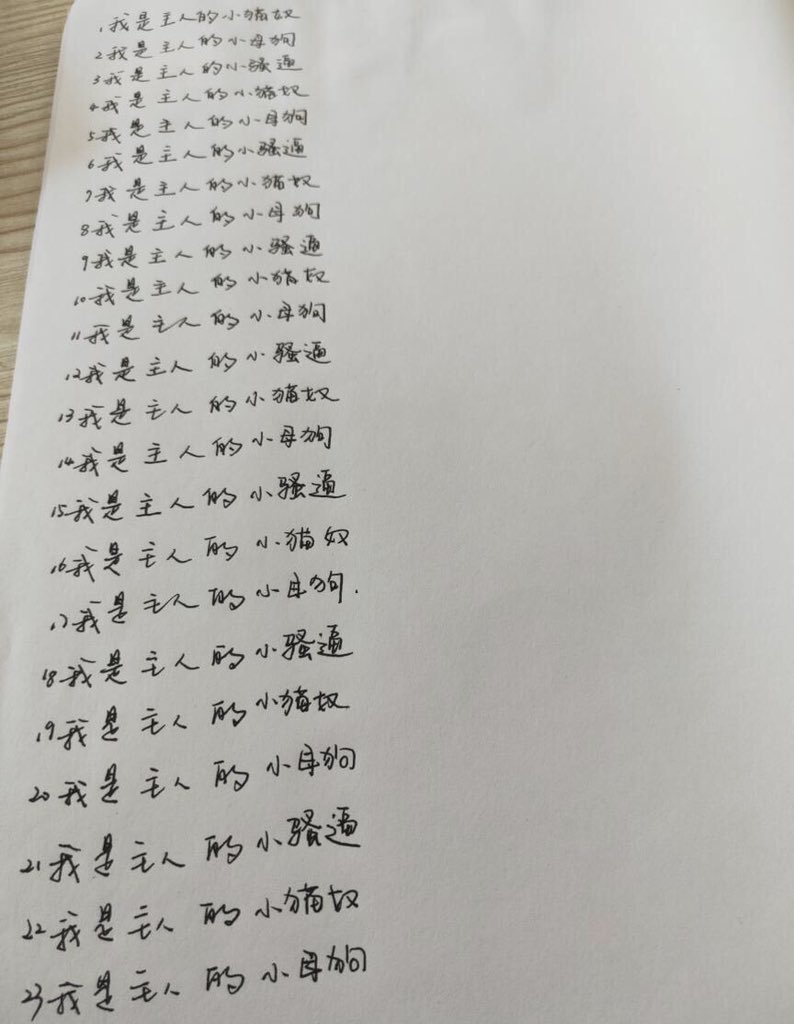 1我是主人的小猫奴
2我是主人的小母狗
3我是主人的小骚逼
4我是主人的小猫奴
5我是主人的小母狗
6我是主人的小骚逼
7我是主人的小猫奴
8我是主人的小母狗
9我是主人的小骚逼
10我是主人的小猫奴
11我是主人的小母狗
12我是主人的小骚逼
13我是主人的小猫奴
14我是主人的小母狗
15我是主人的小骚逼
16我是主人的小猫奴
17我是主人的小母狗.
18我是主人的小骚逼
19我是主人的小猫奴
20我是主人的小母狗
21我是主人的小骚逼
22我是主人的小猫奴
23我是主人的小母狗